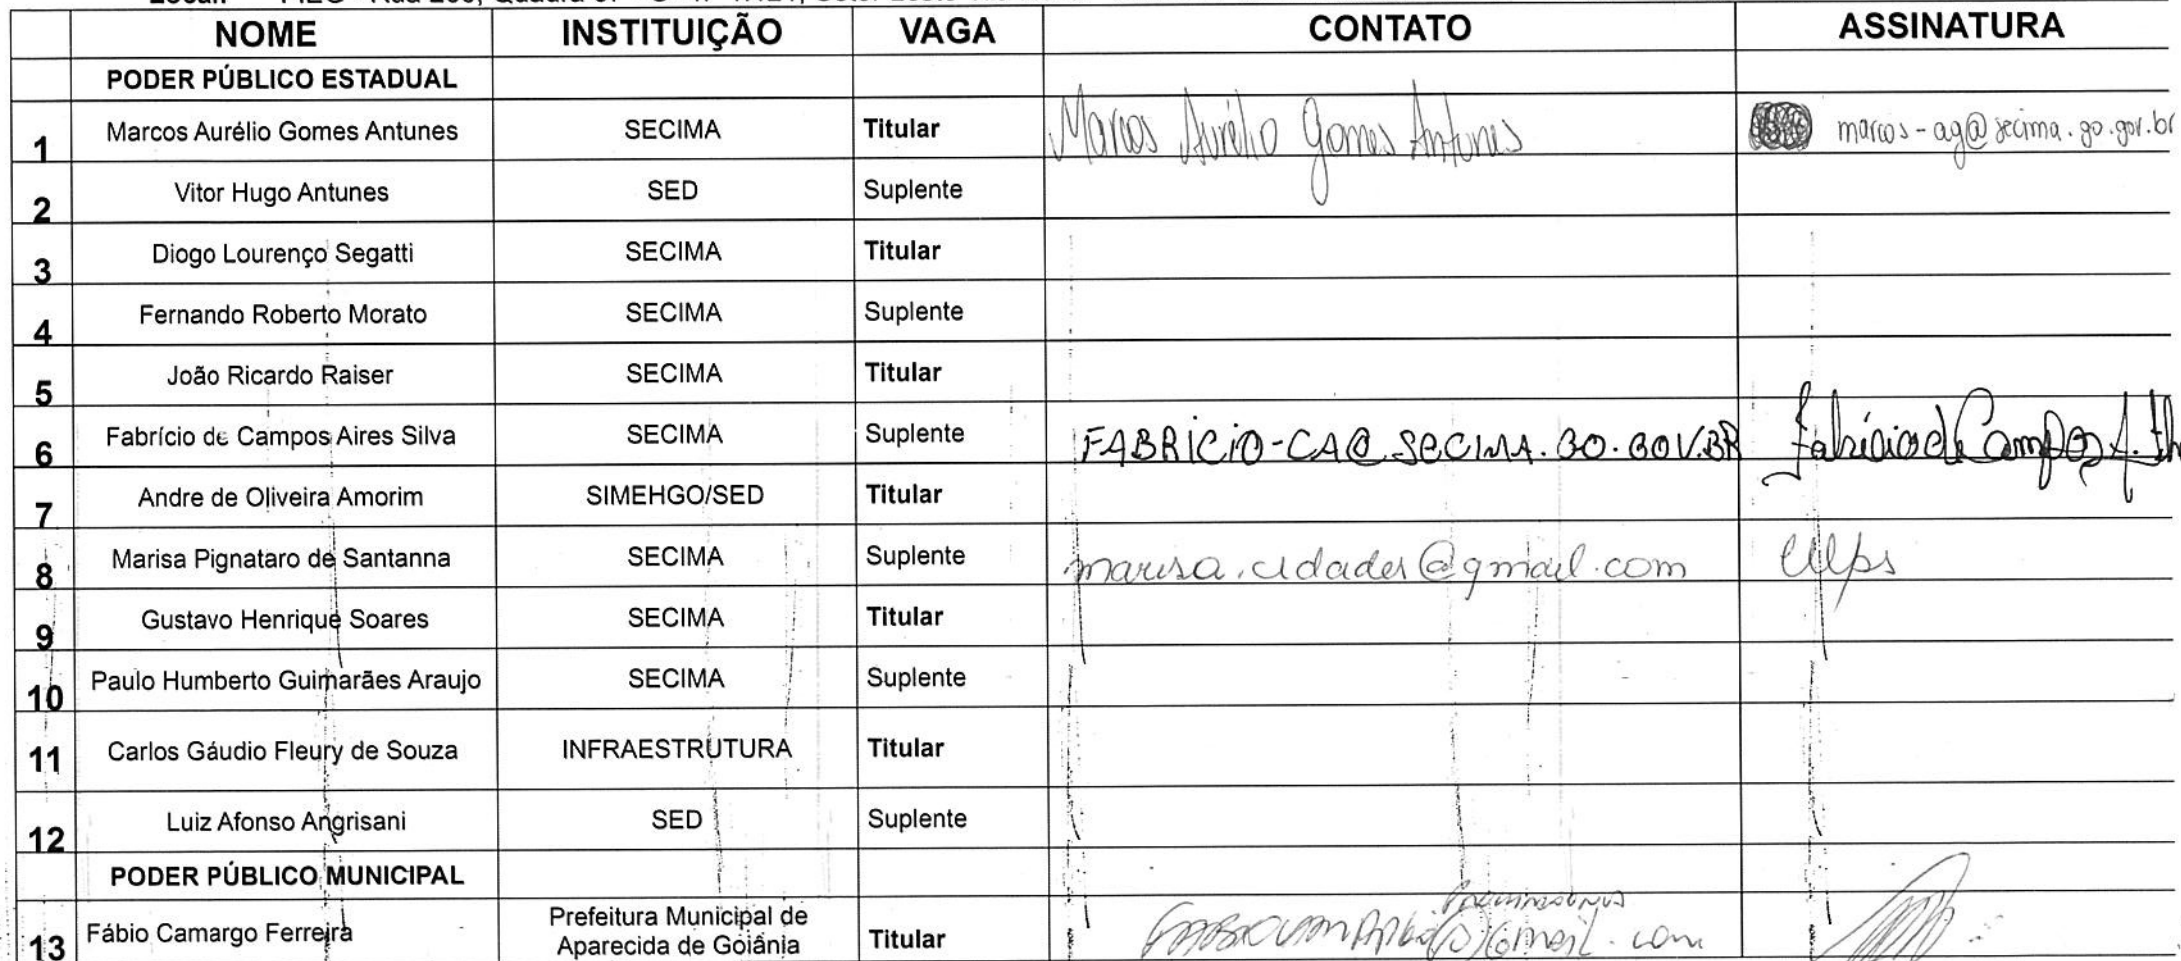 NOME INSTITUIÇÃO VAGA CONTATO ASSINATURA
PODER PÚBLICO ESTADUAL
1 Marcos Aurélio Gomes Antunes SECIMA Titular Marcos Aurélio Gomes Antunes marcos-ag@secima.go.gov.br
2 Vitor Hugo Antunes SED Suplente
3 Diogo Lourenço Segatti SECIMA Titular
4 Fernando Roberto Morato SECIMA Suplente
5 João Ricardo Raiser SECIMA Titular
6 Fabrício de Campos Aires Silva SECIMA Suplente FABRICIO-CA@SECIMA.GO.GOV.BR Fabrício de Campos A.
7 Andre de Oliveira Amorim SIMEHGO/SED Titular
8 Marisa Pignataro de Santanna SECIMA Suplente marisa.cidades@gmail.com
9 Gustavo Henrique Soares SECIMA Titular
10 Paulo Humberto Guimarães Araujo SECIMA Suplente
11 Carlos Gáudio Fleury de Souza INFRAESTRUTURA Titular
12 Luiz Afonso Angrisani SED Suplente
PODER PÚBLICO MUNICIPAL
13 Fábio Camargo Ferreira Prefeitura Municipal de Aparecida de Goiânia Titular @gmail.com